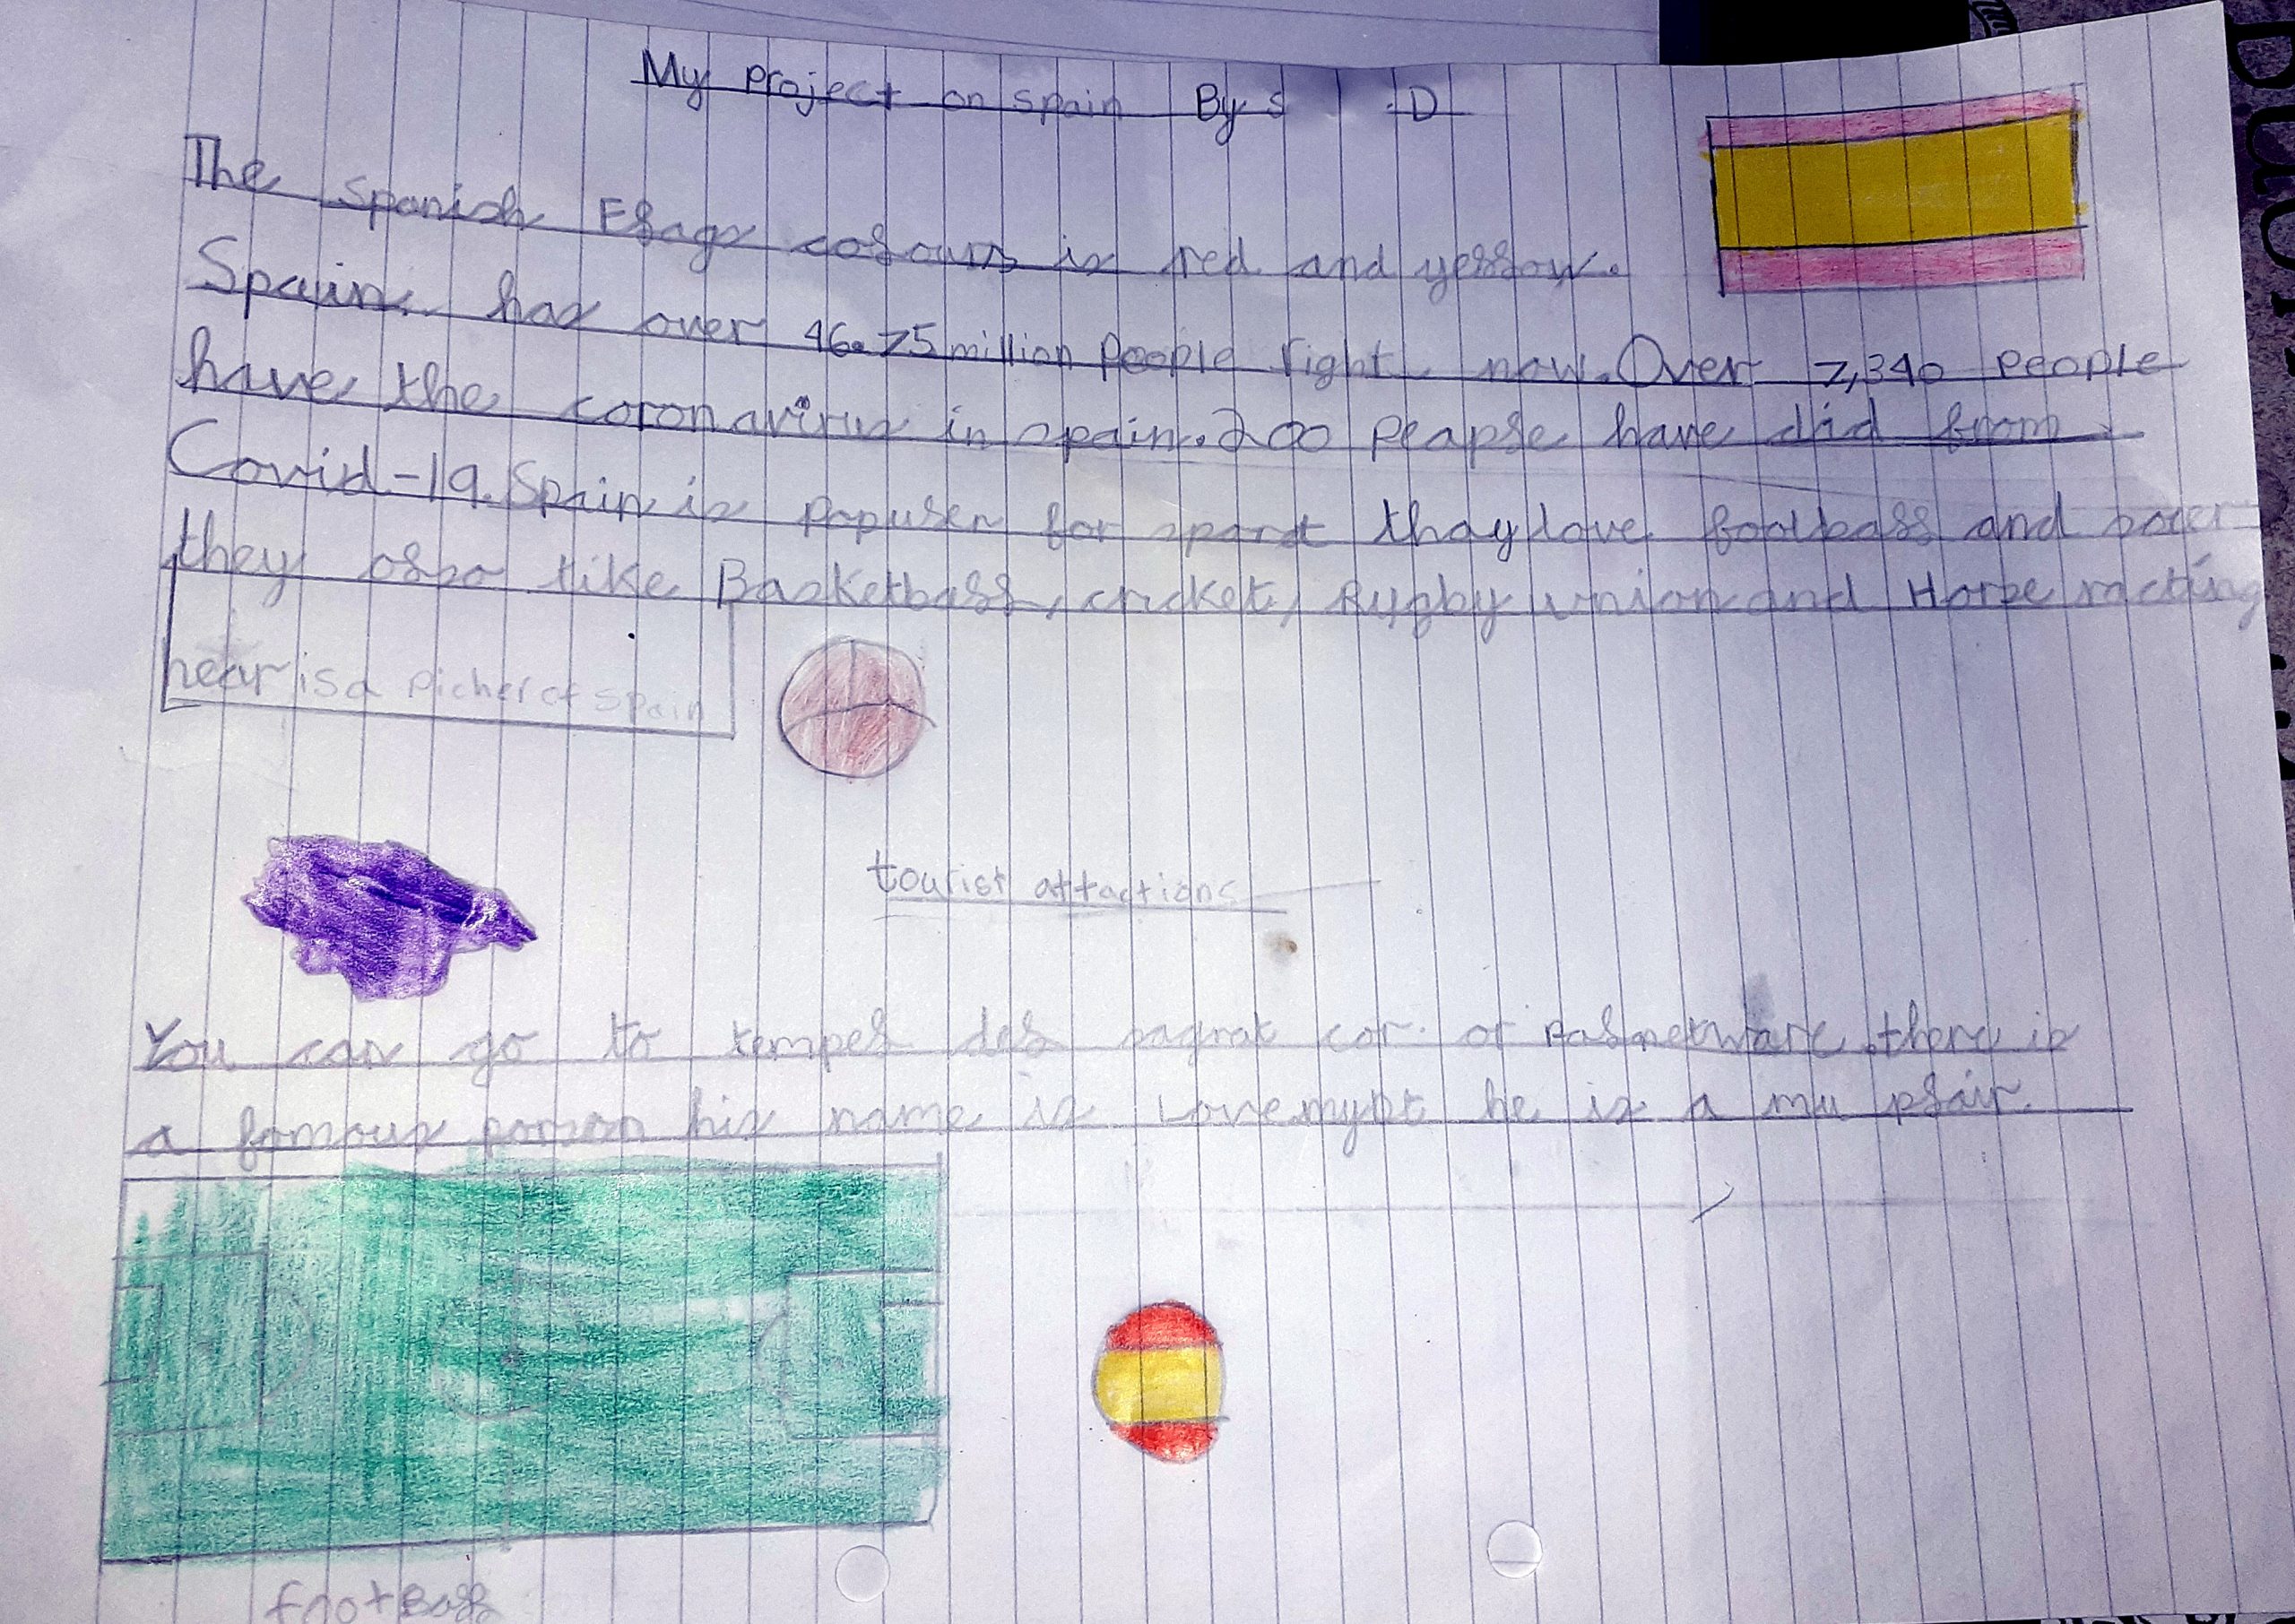 My Project on spain By S :D
The spanish Flags colours is red and yellow.
Spain has over 46.75 million People right now. Over 7,340 People
have the coronavirus in spain. 200 Peaple have did from
Covid-19. Spain is Populer for spord thay love football and socer
they olso like Basketball, cricket, Rugby union and Horse racting
hear is a Picher of Spain
tourist attactions
You can go to tempel del sagrat cor. or there is
a fomous porson his name is he is a mu plair.
footBall